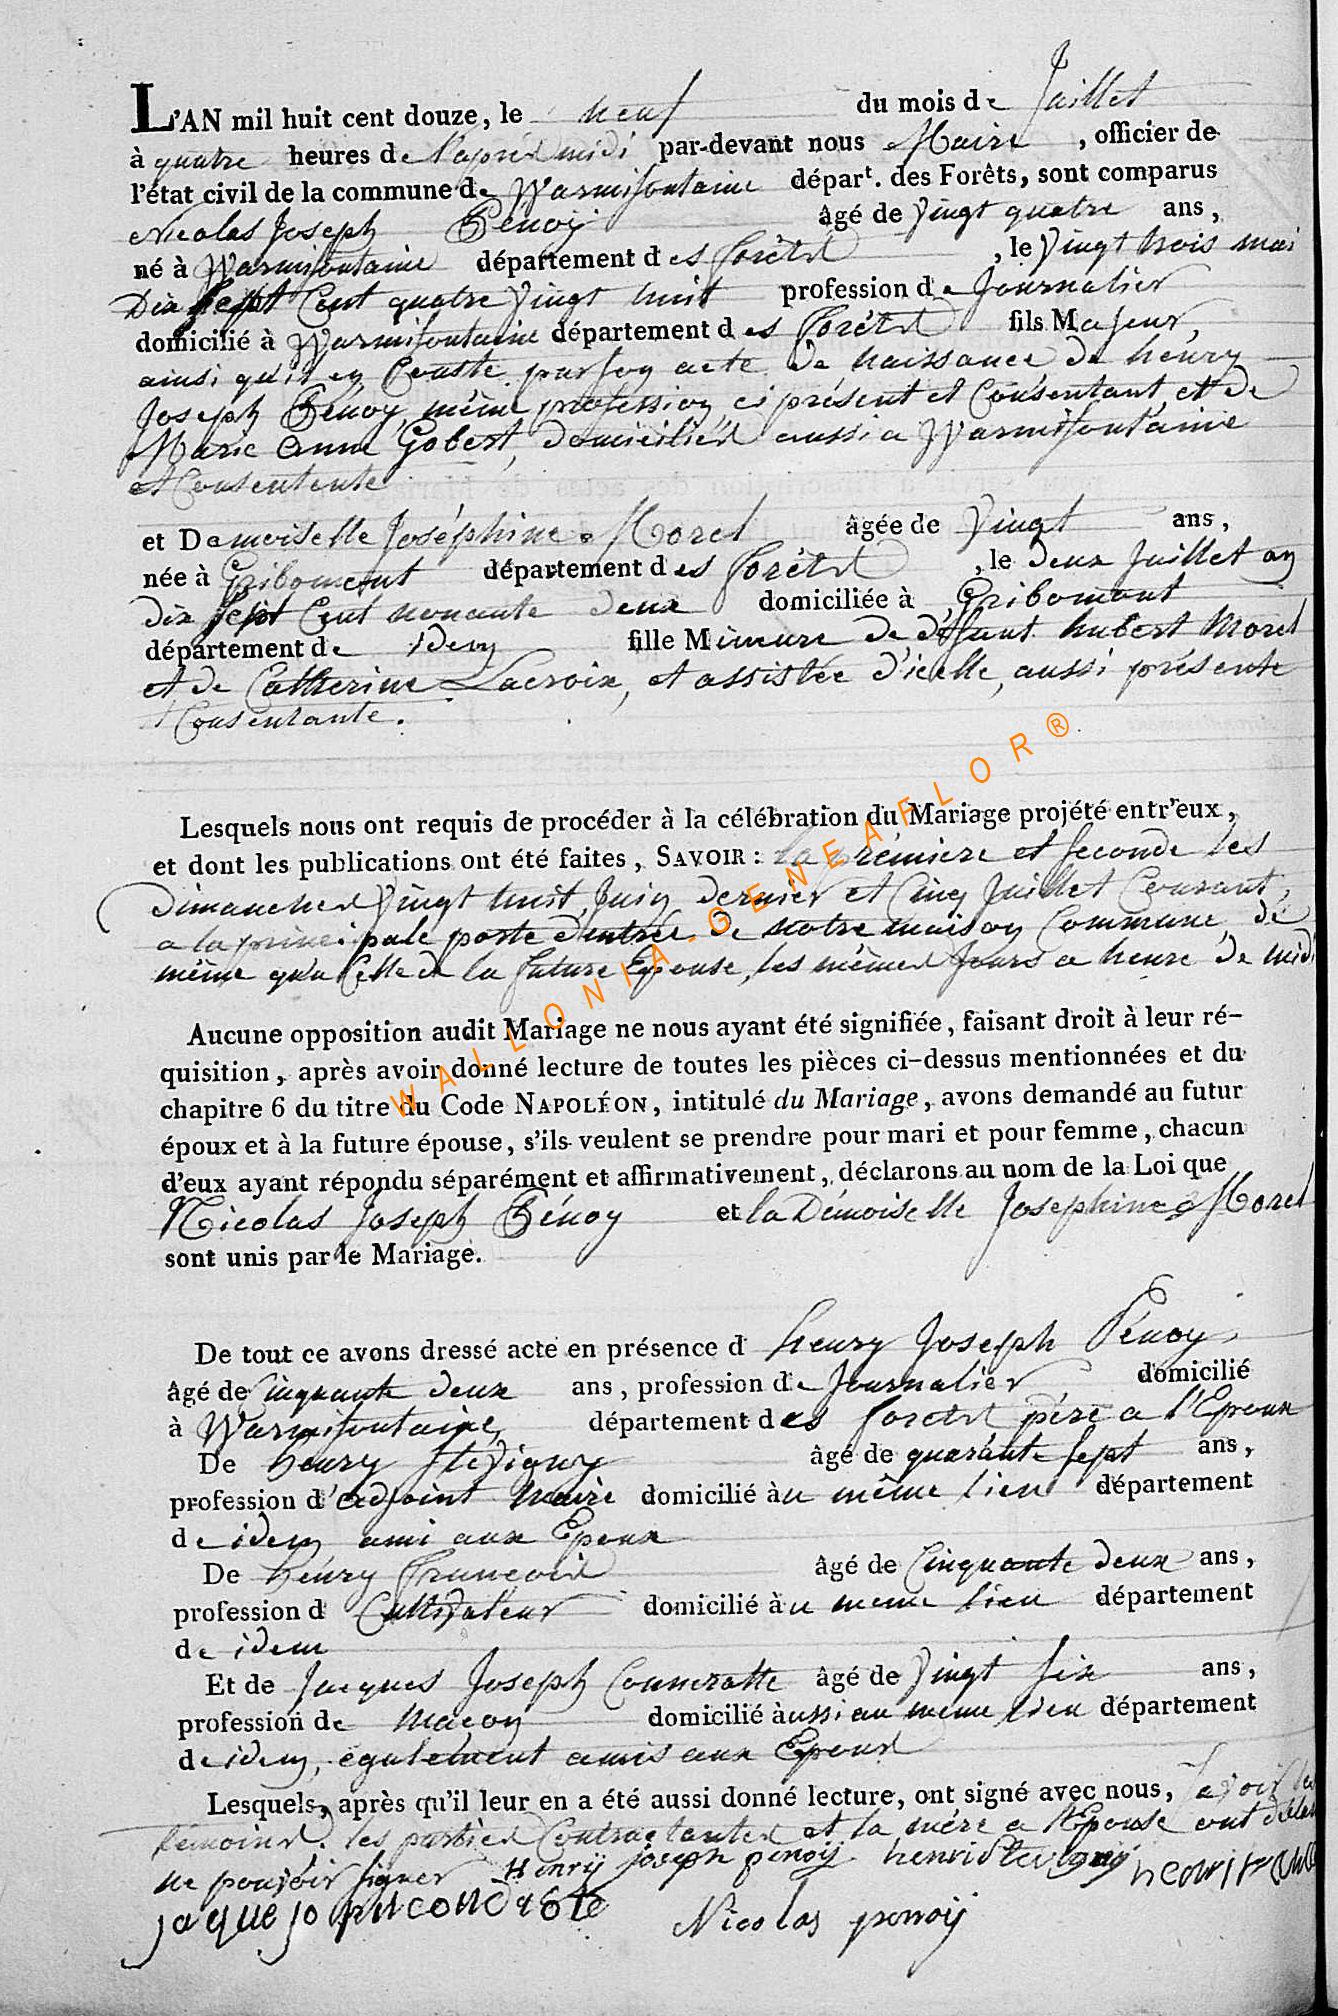 L'AN mil huit cent douze, le neuf du mois de Juillet
à quatre heures de l'aprés midi par-devant nous Maire, officier de
l'état civil de la commune de Warmifontaine départ. des Forêts, sont comparus
Nicolas Joseph Pénoy âgé de vingt quatre ans,
né à Warmifontaine département des forêts, le vingt trois mai
Dix sept Cent quatre vingt huit profession de Journalier
domicilié à Warmifontaine département des forêts fils Majeur,
ainsi qu'il en Conste par son acte de naissance de henry
Joseph Pénoy, même profession, ci présent et Consentant, et de
Marie Anne Gobert, domiciliés aussi a Warmifontaine
et Consentente
et Demoiselle Joséphine Morel âgée de vingt ans,
née à Gribomont département des forêts, le deux Juillet an
dix sept Cent nonante deux domiciliée à Gribomont
département de idem fille Mineure de défunt hubert Morel
et de Catherine Lacroix, et assistée d'icelle, aussi présente
et Consentante.
Lesquels nous ont requis de procéder à la célébration du Mariage projété entr'eux,
et dont les publications ont été faites, SAVOIR : la première et seconde les
dimanches vingt huit Juin dernier et Cinq Juillet Courant,
a la principale porte d'entrée de notre maison Commune, de
même qu'a Celle de la future Epouse, les mêmes Jours a heure de midi
Aucune opposition audit Mariage ne nous ayant été signifiée, faisant droit à leur ré-
quisition, après avoir donné lecture de toutes les pièces ci-dessus mentionnées et du
chapitre 6 du titre du Code NAPOLÉON, intitulé du Mariage, avons demandé au futur
époux et à la future épouse, s'ils veulent se prendre pour mari et pour femme, chacun
d'eux ayant répondu séparément et affirmativement, déclarons au nom de la Loi que
Nicolas Joseph Pénoy et la Démoiselle Josephine Morel
sont unis par le Mariage.
De tout ce avons dressé acte en présence d henry Joseph Pénoy
âgé de Cinquante deux ans, profession de Journalier domicilié
à Warmifontaine, département des forets père a l'Epoux
De henry Stévigny âgé de quarante sept ans,
profession d'adjoint maire domicilié au même lieu département
de idem ami aux Epoux
De henry François âgé de Cinquante deux ans,
profession d Cultivateur domicilié au meme lieu département
de idem
Et de Jacques Joseph Connerotte âgé de vingt six ans,
profession de maçon domicilié aussi au meme lieu département
de idem, égalément amis aux Epoux
Lesquels, après qu'il leur en a été aussi donné lecture, ont signé avec nous, savoir les
témoins. les parties Contractantes et la mère a l'Epouse ont déclaré
ne pouvoir signer Henrÿ joseph penoÿ henri Stevigny henri
jaque Nicolas penoÿ
WALLONIA-GENEAFLOR®